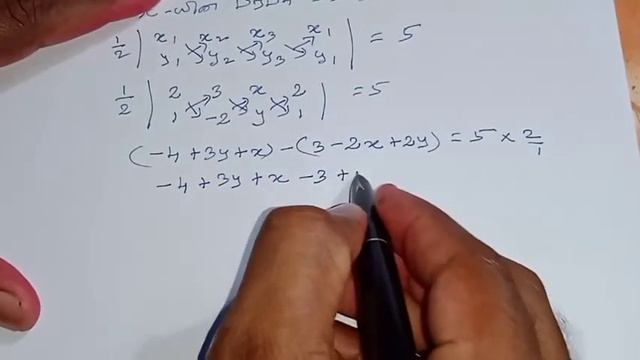 1/2 | x₁ x₂ x₃ x₁ | = 5
y₁ y₂ y₃ y₁
1/2 | 2 3 x 2 | = 5
1 -2 y 1
(-4 + 3y + x) - (3 - 2x + 2y) = 5 × 2/1
-4 + 3y + x - 3 +